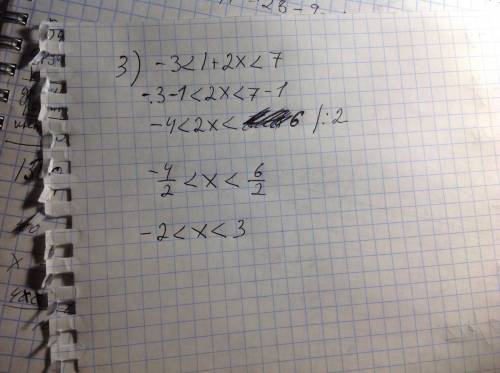 3) -3<1+2x<7
-3-1<2x<7-1
-4<2x<6 /:2
-4/2 < x < 6/2
-2<x<3